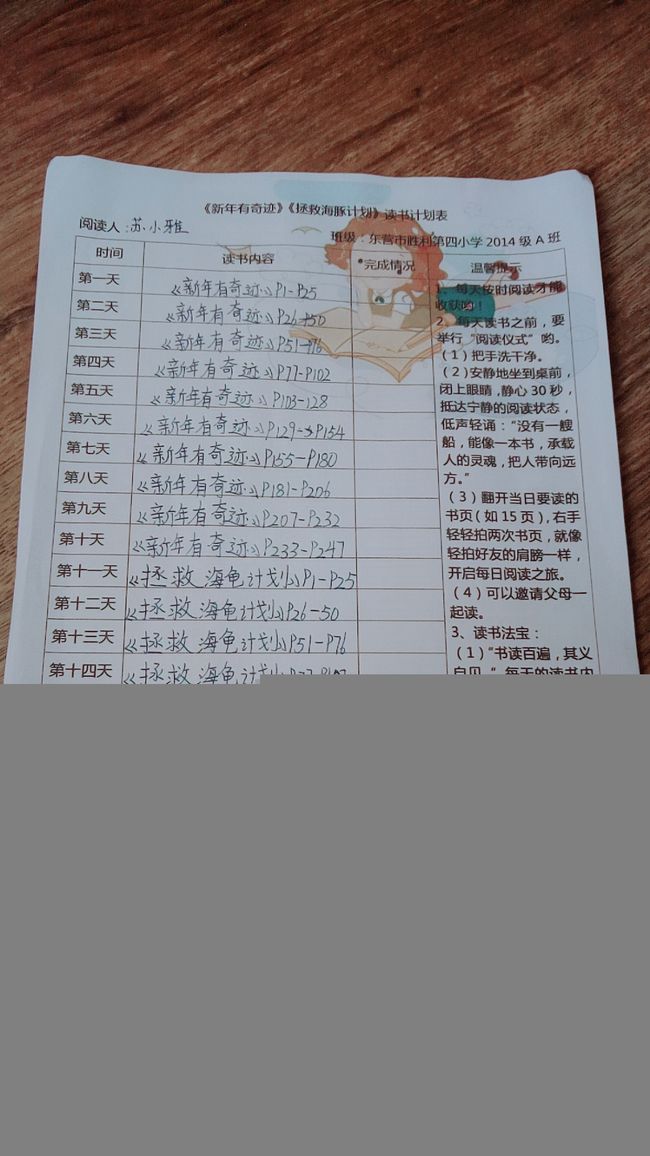 《新年有奇迹》《拯救海豚计划》读书计划表
阅读人：苏小雅
班级：东营市胜利第四小学 2014 级 A 班
时间 读书内容 完成情况 温馨提示
第一天 《新年有奇迹》P1-P25
第二天 《新年有奇迹》P26-50
第三天 《新年有奇迹》P51-P76
第四天 《新年有奇迹》P77-P102
第五天 《新年有奇迹》P103-128
第六天 《新年有奇迹》P129-P154
第七天 《新年有奇迹》P155-P180
第八天 《新年有奇迹》P181-P206
第九天 《新年有奇迹》P207-P232
第十天 《新年有奇迹》P233-P247
第十一天 《拯救海龟计划》P1-P25
第十二天 《拯救海龟计划》P26-50
第十三天 《拯救海龟计划》P51-P76
第十四天 《拯救海龟计
1、每天按时阅读才能
收获哟！
2、每天读书之前，要
举行“阅读仪式”哟。
（1）把手洗干净。
（2）安静地坐到桌前，
闭上眼睛，静心 30 秒，
抵达宁静的阅读状态，
低声轻诵：“没有一艘
船，能像一本书，承载
人的灵魂，把人带向远
方。”
（3）翻开当日要读的
书页（如 15 页），右手
轻轻拍两次书页，就像
轻拍好友的肩膀一样，
开启每日阅读之旅。
（4）可以邀请父母一
起读。
3、读书法宝：
（1）“书读百遍，其义
自见。”每天的读书内